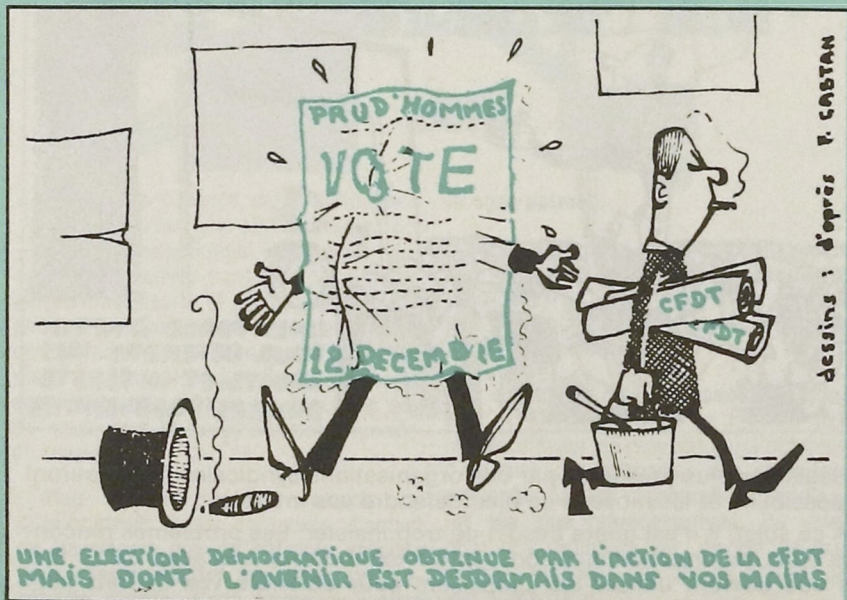 PRUD'HOMMES
VOTE
12 DECEMBRE
CFDT
CFDT
dessins : d'après P. CASTAN
UNE ELECTION DEMOCRATIQUE OBTENUE PAR L'ACTION DE LA CFDT
MAIS DONT L'AVENIR EST DESORMAIS DANS VOS MAINS